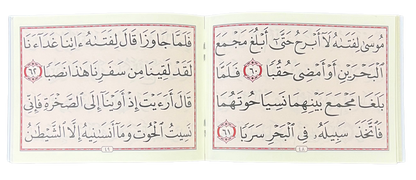 مُوسَىٰ لِفَتَىٰهُ لَآ أَبْرَحُ حَتَّىٰٓ أَبْلُغَ مَجْمَعَ
ٱلْبَحْرَيْنِ أَوْ أَمْضِىَ حُقُبًا ٦٠ فَلَمَّا
بَلَغَا مَجْمَعَ بَيْنِهِمَا نَسِيَا حُوتَهُمَا
فَٱتَّخَذَ سَبِيلَهُۥ فِى ٱلْبَحْرِ سَرَبًا ٦١
فَلَمَّا جَاوَزَا قَالَ لِفَتَىٰهُ ءَاتِنَا غَدَآءَنَا
لَقَدْ لَقِينَا مِن سَفَرِنَا هَٰذَا نَصَبًا ٦٢
قَالَ أَرَءَيْتَ إِذْ أَوَيْنَآ إِلَى ٱلصَّخْرَةِ فَإِنِّى
نَسِيتُ ٱلْحُوتَ وَمَآ أَنسَىٰنِيهُ إِلَّا ٱلشَّيْطَٰنُ